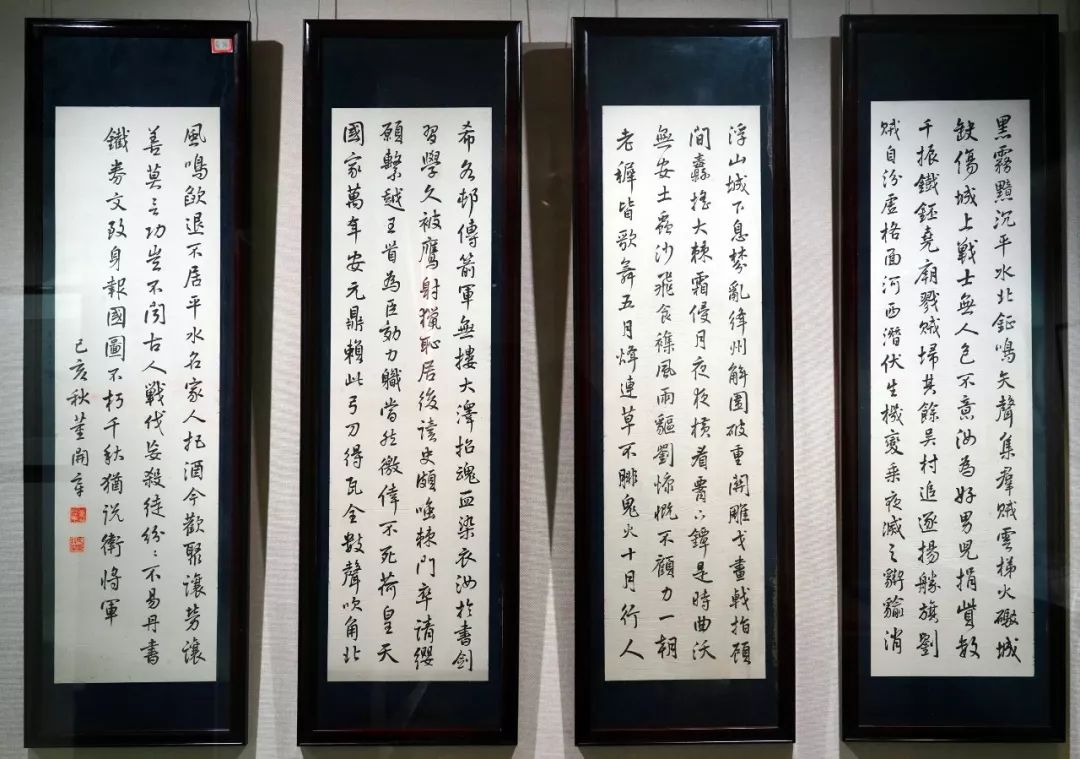 黑霧黯沉平水北鉦鳴矢聲集羣賊雲梯火礮城
缺傷城上戰士無人色不意汝為好男兒捐貲数
千振鐵鉦堯廟戮賊埽其餘吴村追逐揚勝旗劉
賊自汾虛格面河西潛伏生機變乗夜滅之
消
浮山城下息棼亂絳州解圍破重開雕戈畫戟指顧
間轟搖大棘霜侵月夜夜橫看
鐔是時曲沃
無安土露沙飛食襍風雨驅劉慷慨不顧力一朝
老穉皆歌舞五月煒連草不腓鬼火十月行人
希各邨傳箭軍無摟大澤招魂血染衣汝於書劍
習學久被鷹射獵恥居後读史頗嗤棘門率请纓
願繫越王首為臣効力職當然徼倖不死荷皇天
國家萬年安元鼎賴此弓刀得瓦全数聲吹角北
風鳴飲退不居平水名家人把酒今歡聚讓勞讓
善莫言功豈不聞古人戰伐妄殺徒紛〻不易丹書
鐵券文致身報國圖不朽千秋猶说衛將軍
己亥秋董開章